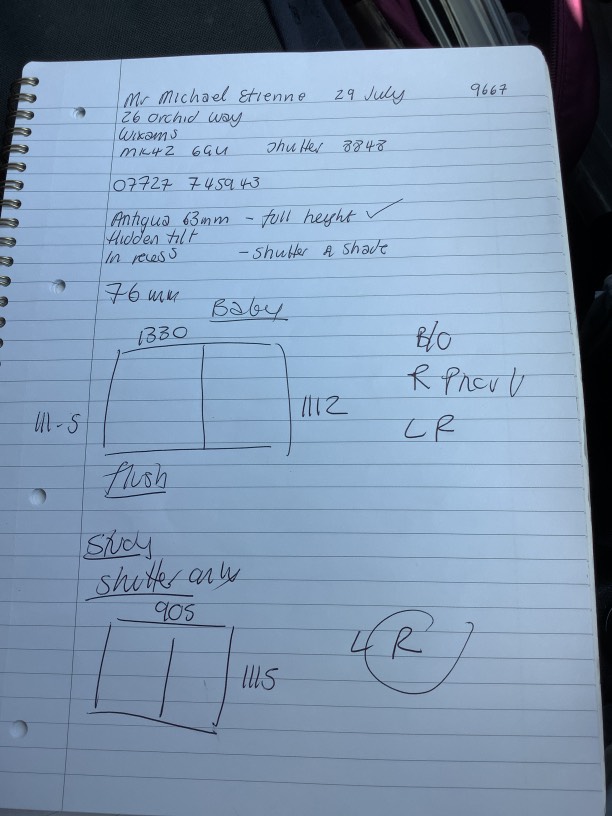 Mr Michael Etienne 29 July 9667
26 Orchid Way
Wixams
MK42 6GU Shutter 8848
07727 745943
Antigua 63mm - full height ✓
Hidden tilt
In recess - Shutter & Shade
76 mm
Baby
1330
B/O
R
1112
111-5
L R
flush
Study
Shutter only
905
L R
1115